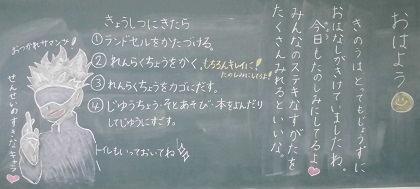 おはよう
きのうはとってもじょうずに
おはなしがきけていましたね。
今日もたのしみにしてるよ♥
みんなのステキなすがたを
たくさんみれるといいな。
きょうしつにきたら
①ランドセルをかたづける。
②れんらくちょうをかく。もちろんキレイに!
たのしみにしてるよ!
③れんらくちょうをカゴにだす。
④じゆうちょう・そとあそび・本をよんだり
してじゆうにすごす。
トイレもいっておいてね
おつかれサマンサ!!
せんせいのすきなキャラ♥